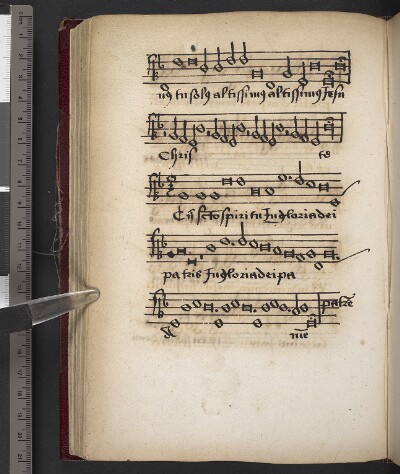 us tu solus altissimus altissimus Jesu
Chris te
Cu sctospiritu Jn gloria dei
pa tris Jn gloria dei pa
patre
me